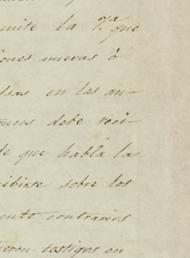 mite la 7.ª que
iones nuevas ó
en las an-
debe reci-
de que habla la
cibirse sobre los
ento contrarios
testigos en